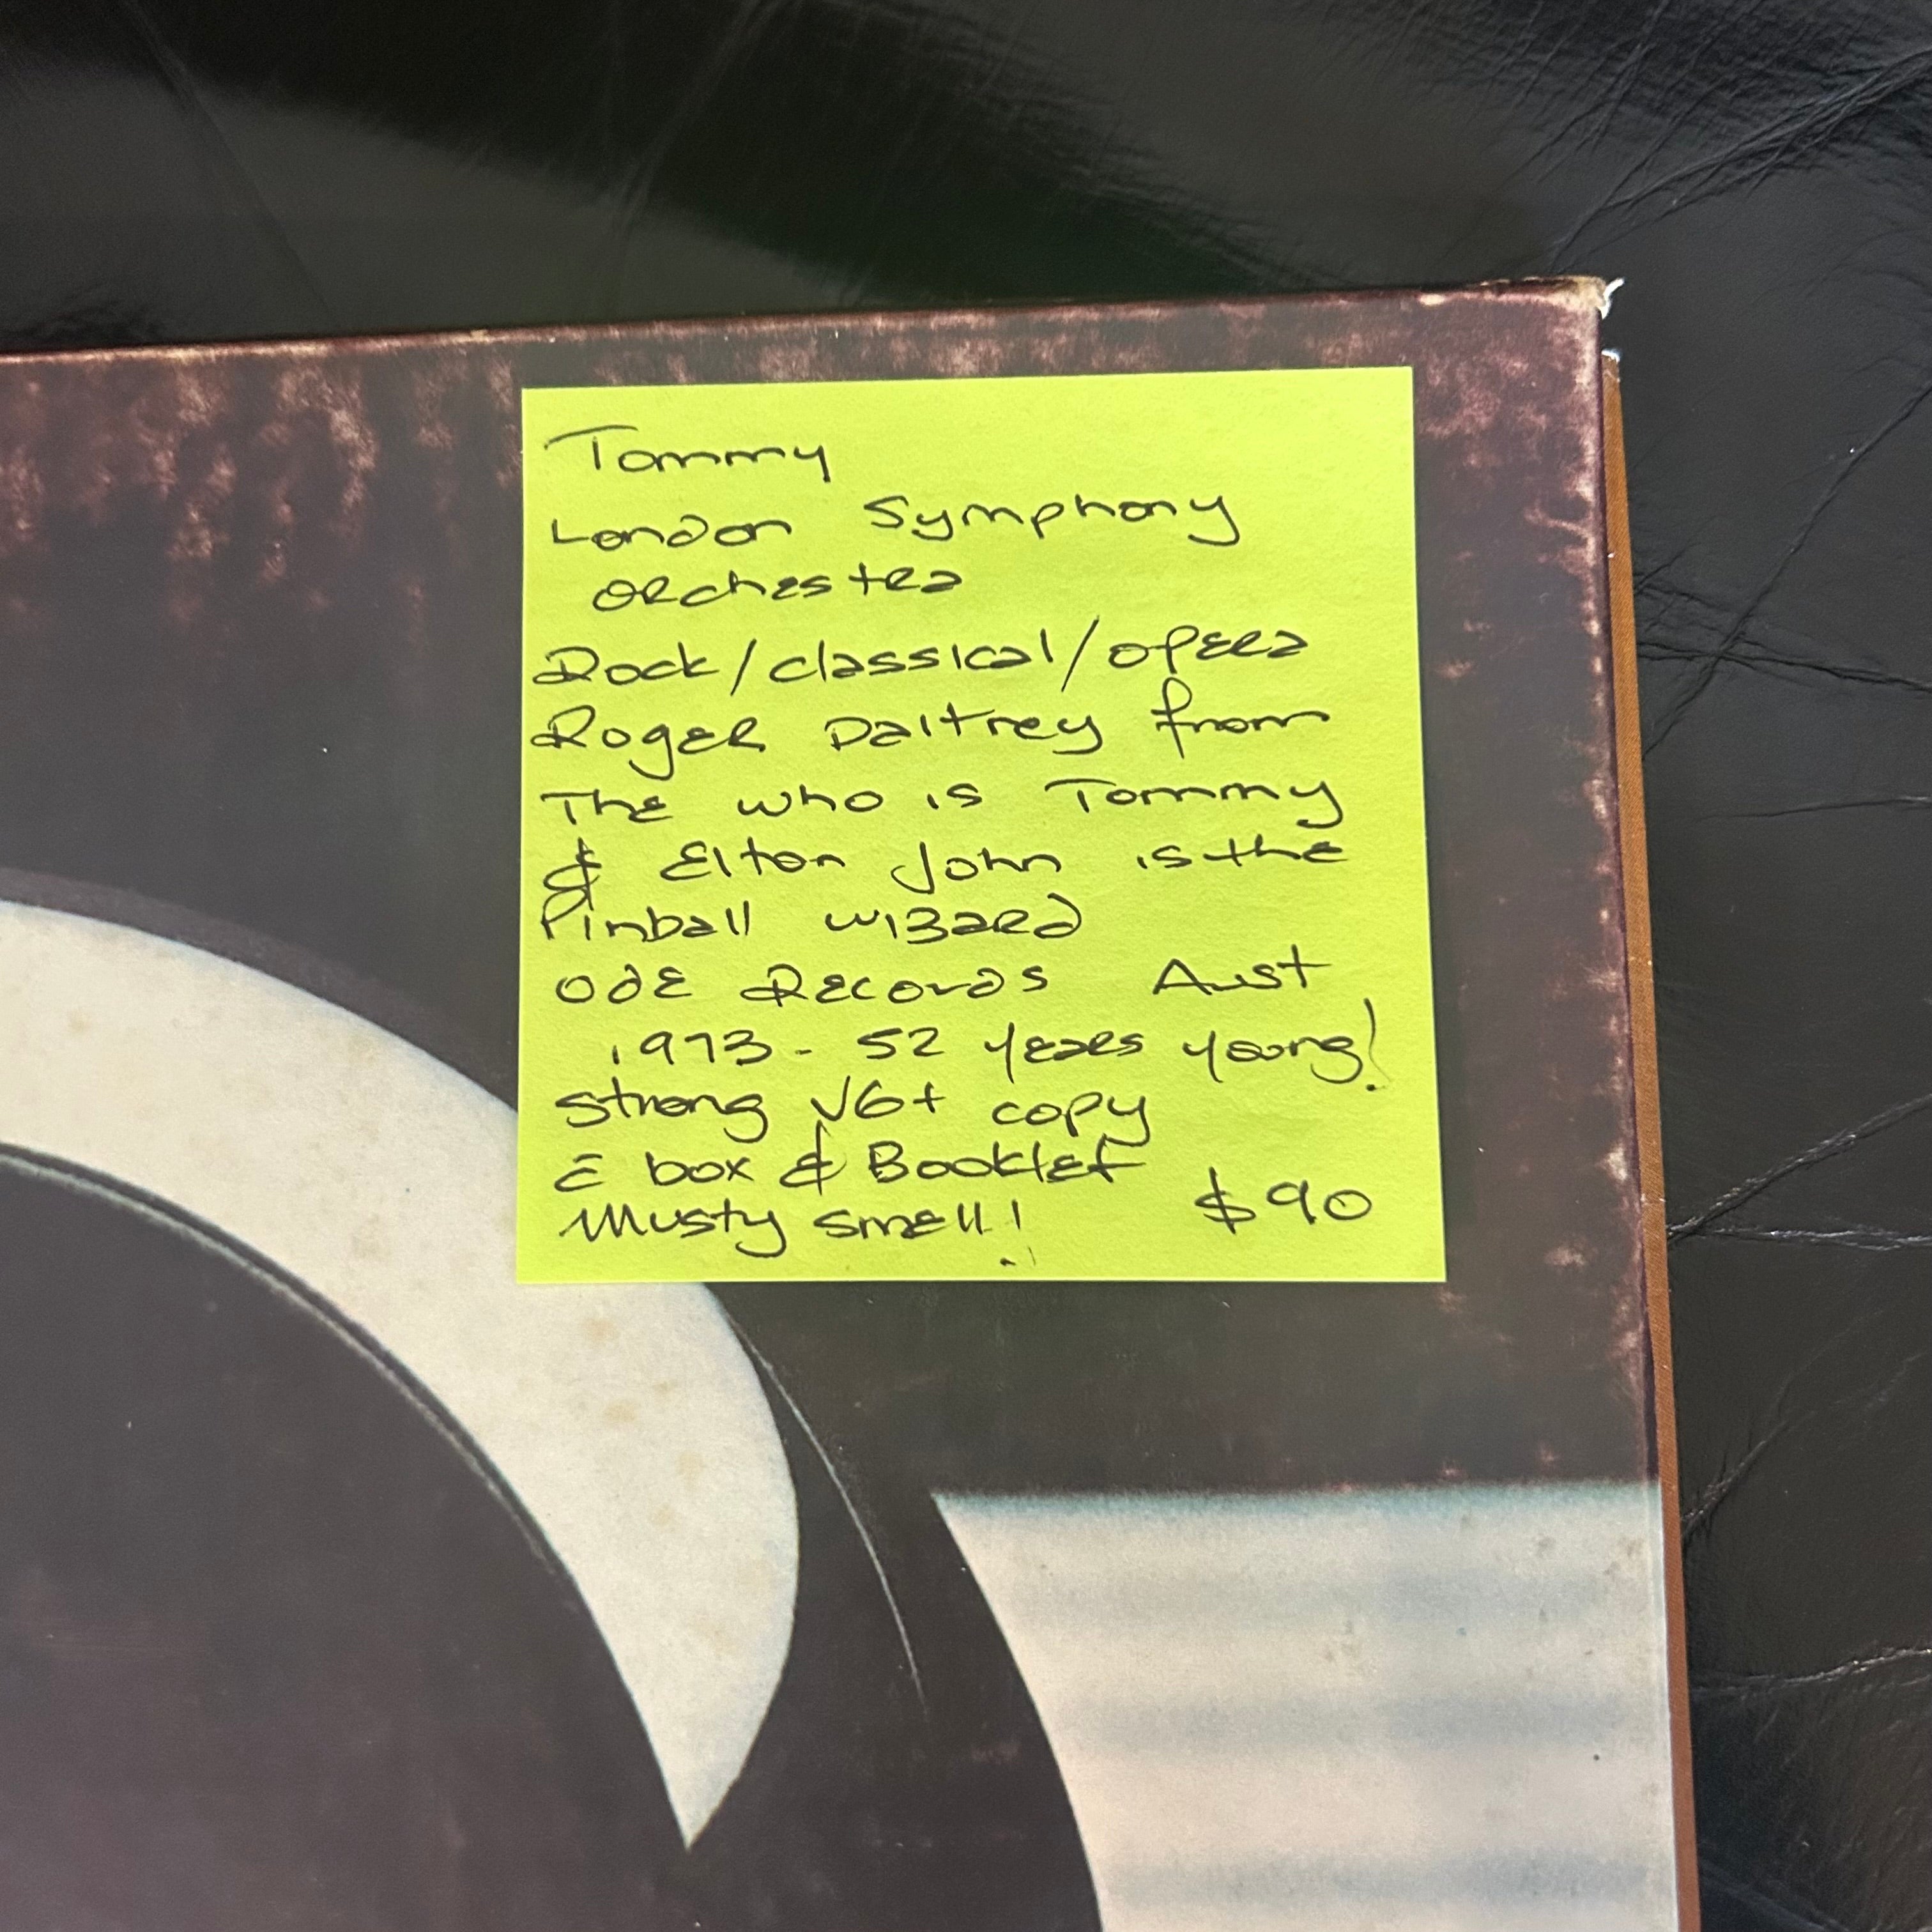 Tommy
London Symphony
Orchestra
Rock/classical/opera
Roger Daltrey from
The who is Tommy
& Elton John is the
Pinball wizard
Ode Records Aust
1973 - 52 years young!
strong VG+ copy
c̄ box & Booklet
Musty smell! $90